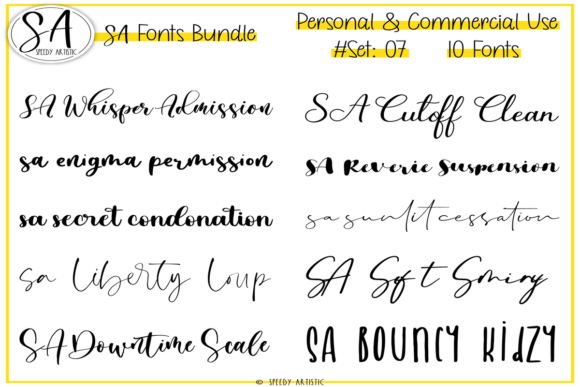 SA
SPEEDY ARTISTIC
SA Fonts Bundle
Personal & Commercial Use
#Set: 07 10 Fonts
SA Whisper Admission
SA Cutoff Clean
sa enigma permission
SA Reverie Suspension
sa secret condonation
sa sunlit cessation
sa Liberty Loup
SA Soft Smiry
SA Downtime Scale
SA BOUNCY KIDZY
© SPEEDY ARTISTIC